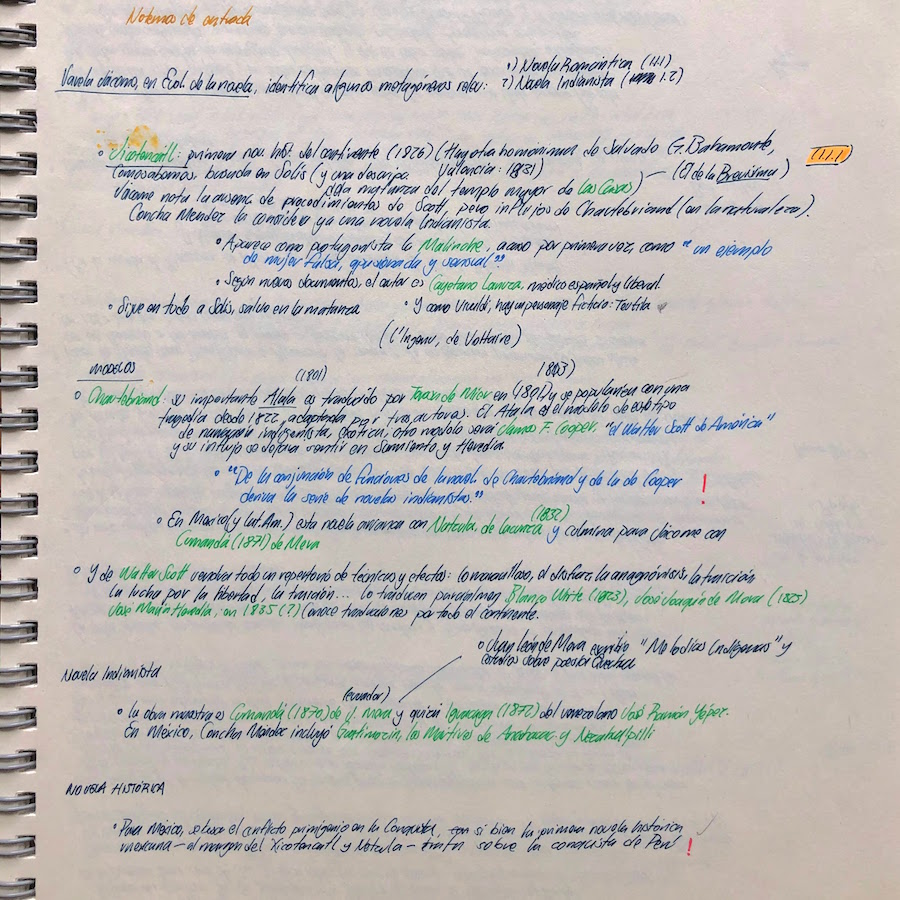 Notemas de entrada
1) Novela Romántica (1.1.1)
Varela Jácome, en Evol. de la novela, identifica algunos metagéneros relev: 2) Novela Indianista (1.2)
• Xicotencatl: primera nov. hist. del continente (1826) (Hay otra homónima de Salvador G. Bahamonte, (1.1.1)
Como sabemos, basada en Solís (y una descripc. Valencia: 1831)
de la matanza del templo mayor de Las Casas) — (El de la Brevísima)
Jácome nota la ausenc. de procedimientos de Scott, pero influjos de Chautebriand (en la naturaleza).
Concha Mendez la considera ya una novela Indianista.
• Aparece como protagonista la Malinche, acaso por primera vez, como "un ejemplo
de mujer falsa, apasionada y sensual."
• Según nuevos documentos, el autor es Cayetano Lanuza, médico español y liberal.
• Sigue en todo a Solís, salvo en la matanza • Y como Vivaldi, hay un personaje ficticio: Teutila
(L'Ingenu, de Voltaire)
MODELOS (1801) 1803)
• Chautebriand: su importante Atala es traducido por Teresa de Mier en (1801) y se populariza con una
tragedia desde 1822, adaptada por tres autores. El Atala es el modelo de este tipo
de narrativa indigenista, exótica; otro modelo será James F. Cooper, "el Walter Scott de América"
y su influjo se dejará sentir en Sarmiento y Heredia
• "De la conjunción de funciones de la novel. de Chautebriand y de la de Cooper
deriva la serie de novelas indianistas." !
(1832)
• En México (y Lat. Am.) esta novela arranca con Netzula, de Lacunza y culmina para Jácome con
Cumandá (1871) de Mera
• Y de Walter Scott vendrá todo un repertorio de técnicas y efectos: lo maravilloso, el disfraz, la anagnórisis, la traición
la lucha por la libertad, la traición... Lo traducen Blanco White (1823), José Joaquín de Mora (1825)
José María Heredia, en 1835 (?) Conoce traducciones por todo el continente.
• Juan León de Mera escribió "Melodías Indígenas" y
estudios sobre poesía Quechua
Novela Indianista
(ecuador)
• La obra maestra es Cumandá (1870) de J. Mera y quizá Iguaraya (1872) del venezolano José Ramón Yépez.
En México, Concha Mendez incluyó Guatimozín, los Mártires de Anahuac y Nezahualpilli
NOVELA HISTÓRICA
• Para México, se busca el conflicto primigenio en la Conquista, si bien la primera novela histórica
mexicana – al margen del Xicotencatl y Netzula – sobre la conquista de Perú !